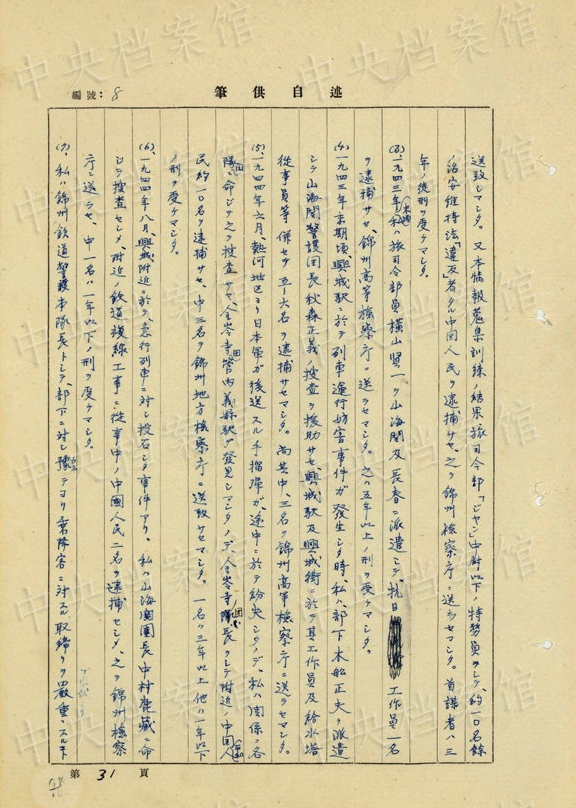 述自供筆
編號：8
送致シマシタ。又本情報蒐集訓練ノ結果旅司令部「ジャン」中尉以下ノ特務員ヲシテ、約一〇名餘
ノ治安維持法「違反」者タル中国人民ヲ逮捕サセ、之ヲ錦州検察庁ニ送ラセマシタ。首謀者ハ三
年ノ徒刑ヲ受ケマシタ。
(3)、一九四三年 私ハ旅司令部員横山賢一ヲ山海関及長春ニ派遣シテ、抗日 工作員一名
ヲ逮捕サセ、錦州高等検察庁ニ送ラセマシタ。之ハ五年以上ノ刑ヲ受ケマシタ。
(4)、一九四三年末期頃興城駅ニ於テ列車運行妨害事件ガ発生シタ時、私ハ部下末松正夫ヲ派遣
シテ山海関警護団長秋森正義ノ捜査ヲ援助サセ、興城駅及興城街ニ於テ其工作員及給水塔
従事員等併セテ五－六名ヲ逮捕サセマシタ。尚其中、三名ヲ錦州高等検察庁ニ送ラセマシタ。
(5)、一九四四年六月、熱河地区ヨリ日本軍ガ後送スル手榴弾ガ、途中ニ於テ紛失シタノデ、私ハ関係ノ各
隊ニ命ジテ之ヲ捜査サセ、金嶺寺団管内義縣駅デ発見シマシタノデ、金嶺寺団長ヲシテ附近ノ中国人
民約一〇名ヲ逮捕サセ、中三名ヲ錦州地方検察庁ニ送致サセマシタ。一名ハ三年以上他ハ一年以下
ノ刑ヲ受ケマシタ。
(6)、一九四四年八月、興城附近ニ於テ、急行列車ニ対シ投石シタ事件アリ、私ハ山海関団長中村鹿蔵ニ命
ジテ捜査セシメ、附近ノ鉄道複線工事ニ従事中ノ中国人民二名ヲ逮捕セシメ、之ヲ錦州検察
庁ニ送ラセ、中一名ハ一年以下ノ刑ヲ受ケマシタ。
(7)、私ハ錦州鉄道警護本隊長トシテ、部下ニ対シ豫テヨリ乗降客ニ対スル取締リヲ厳重ニスル末
第 31 頁
中央档案馆